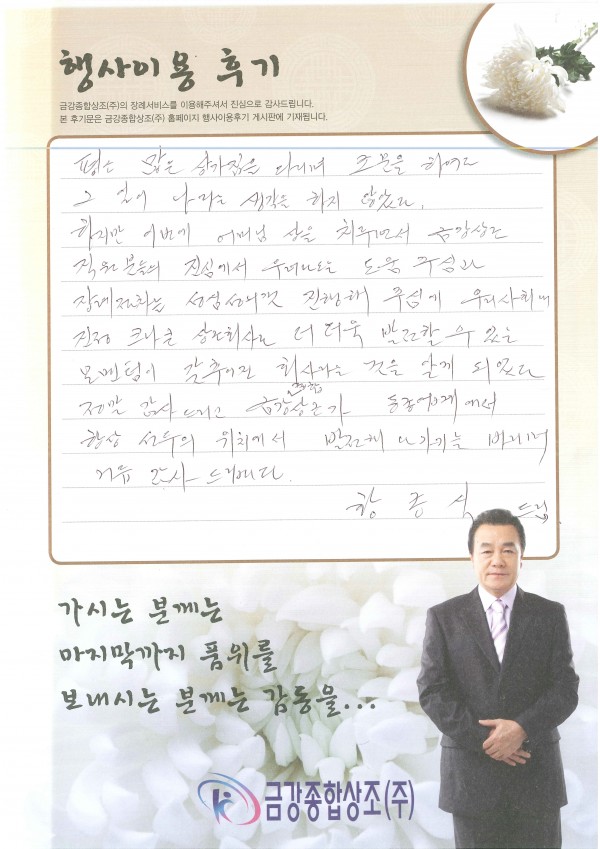 행사이용 후기
금강종합상조(주)의 장례서비스를 이용해주셔서 진심으로 감사드립니다.
본 후기문은 금강종합상조(주) 홈페이지 행사이용후기 게시판에 기재됩니다.
평소 많은 상가집을 다니며 조문을 하여도
그 일이 나라는 생각을 하지 않았다.
하지만 이번에 어머님 상을 치루면서 금강상조
직원분들의 진심에서 우러나오는 도움 주심과
장례절차를 성심성의껏 진행해 주심에 우리사회에
진정 크나큰 상조회사로 더 더욱 발전할 수 있는
모멘텀이 갖추어진 회사라는 것을 알게 되었다
정말 감사 드리고 금강종합상조가 동종업계에서
항상 선두의 위치에서 발전해 나가기를 바라며
거듭 감사 드립니다.
황종석 드림
가시는 분께는
마지막까지 품위를
보내시는 분께는 감동을...
금강종합상조(주)